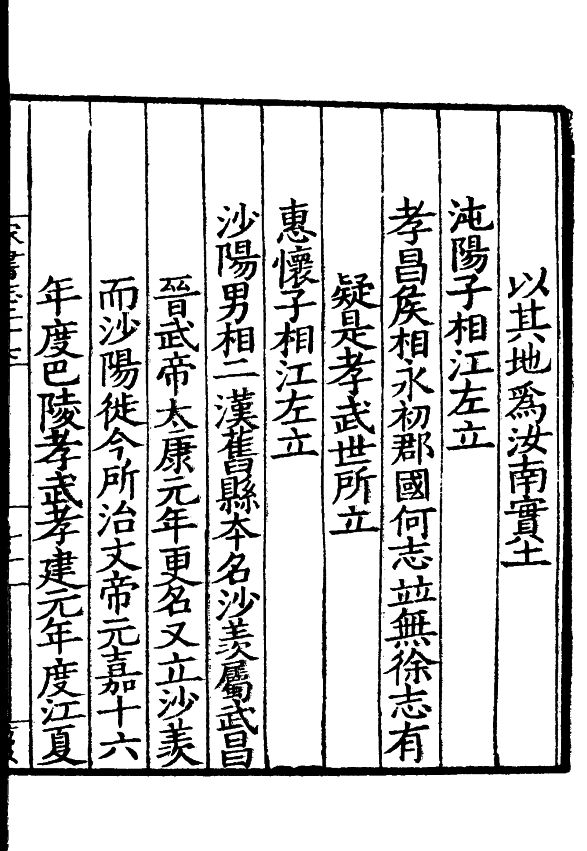 以其地爲汝南實土
沌陽子相江左立
孝昌矦相永初郡國何志並無徐志有
疑是孝武世所立
惠懷子相江左立
沙陽男相二漢舊縣本名沙羡屬武昌
晉武帝太康元年更名又立沙羡
而沙陽徙今所治文帝元嘉十六
年度巴陵孝武孝建元年度江夏